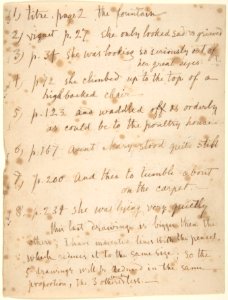 1) titre. page 2 the fountain
2) vignet p. 27 she only looked sad & grieved
3) p. 34 She was looking so seriously out of
her great eyes
4) p. 92 she climbed up to the top of a
high backed chair
5) p. 123 and waddled off as orderly
as could be to the poultry house
6) p. 167. Agent stood quite still
7) p. 200 And then to tumble about
on the carpet.
8) p. 234 She was lying very quietly
This last drawing is bigger than the
others; I have indicated lines with the pencil,
which reduces it to the same size; so the
drawings will be reduced in the same
proportion, the 3 others